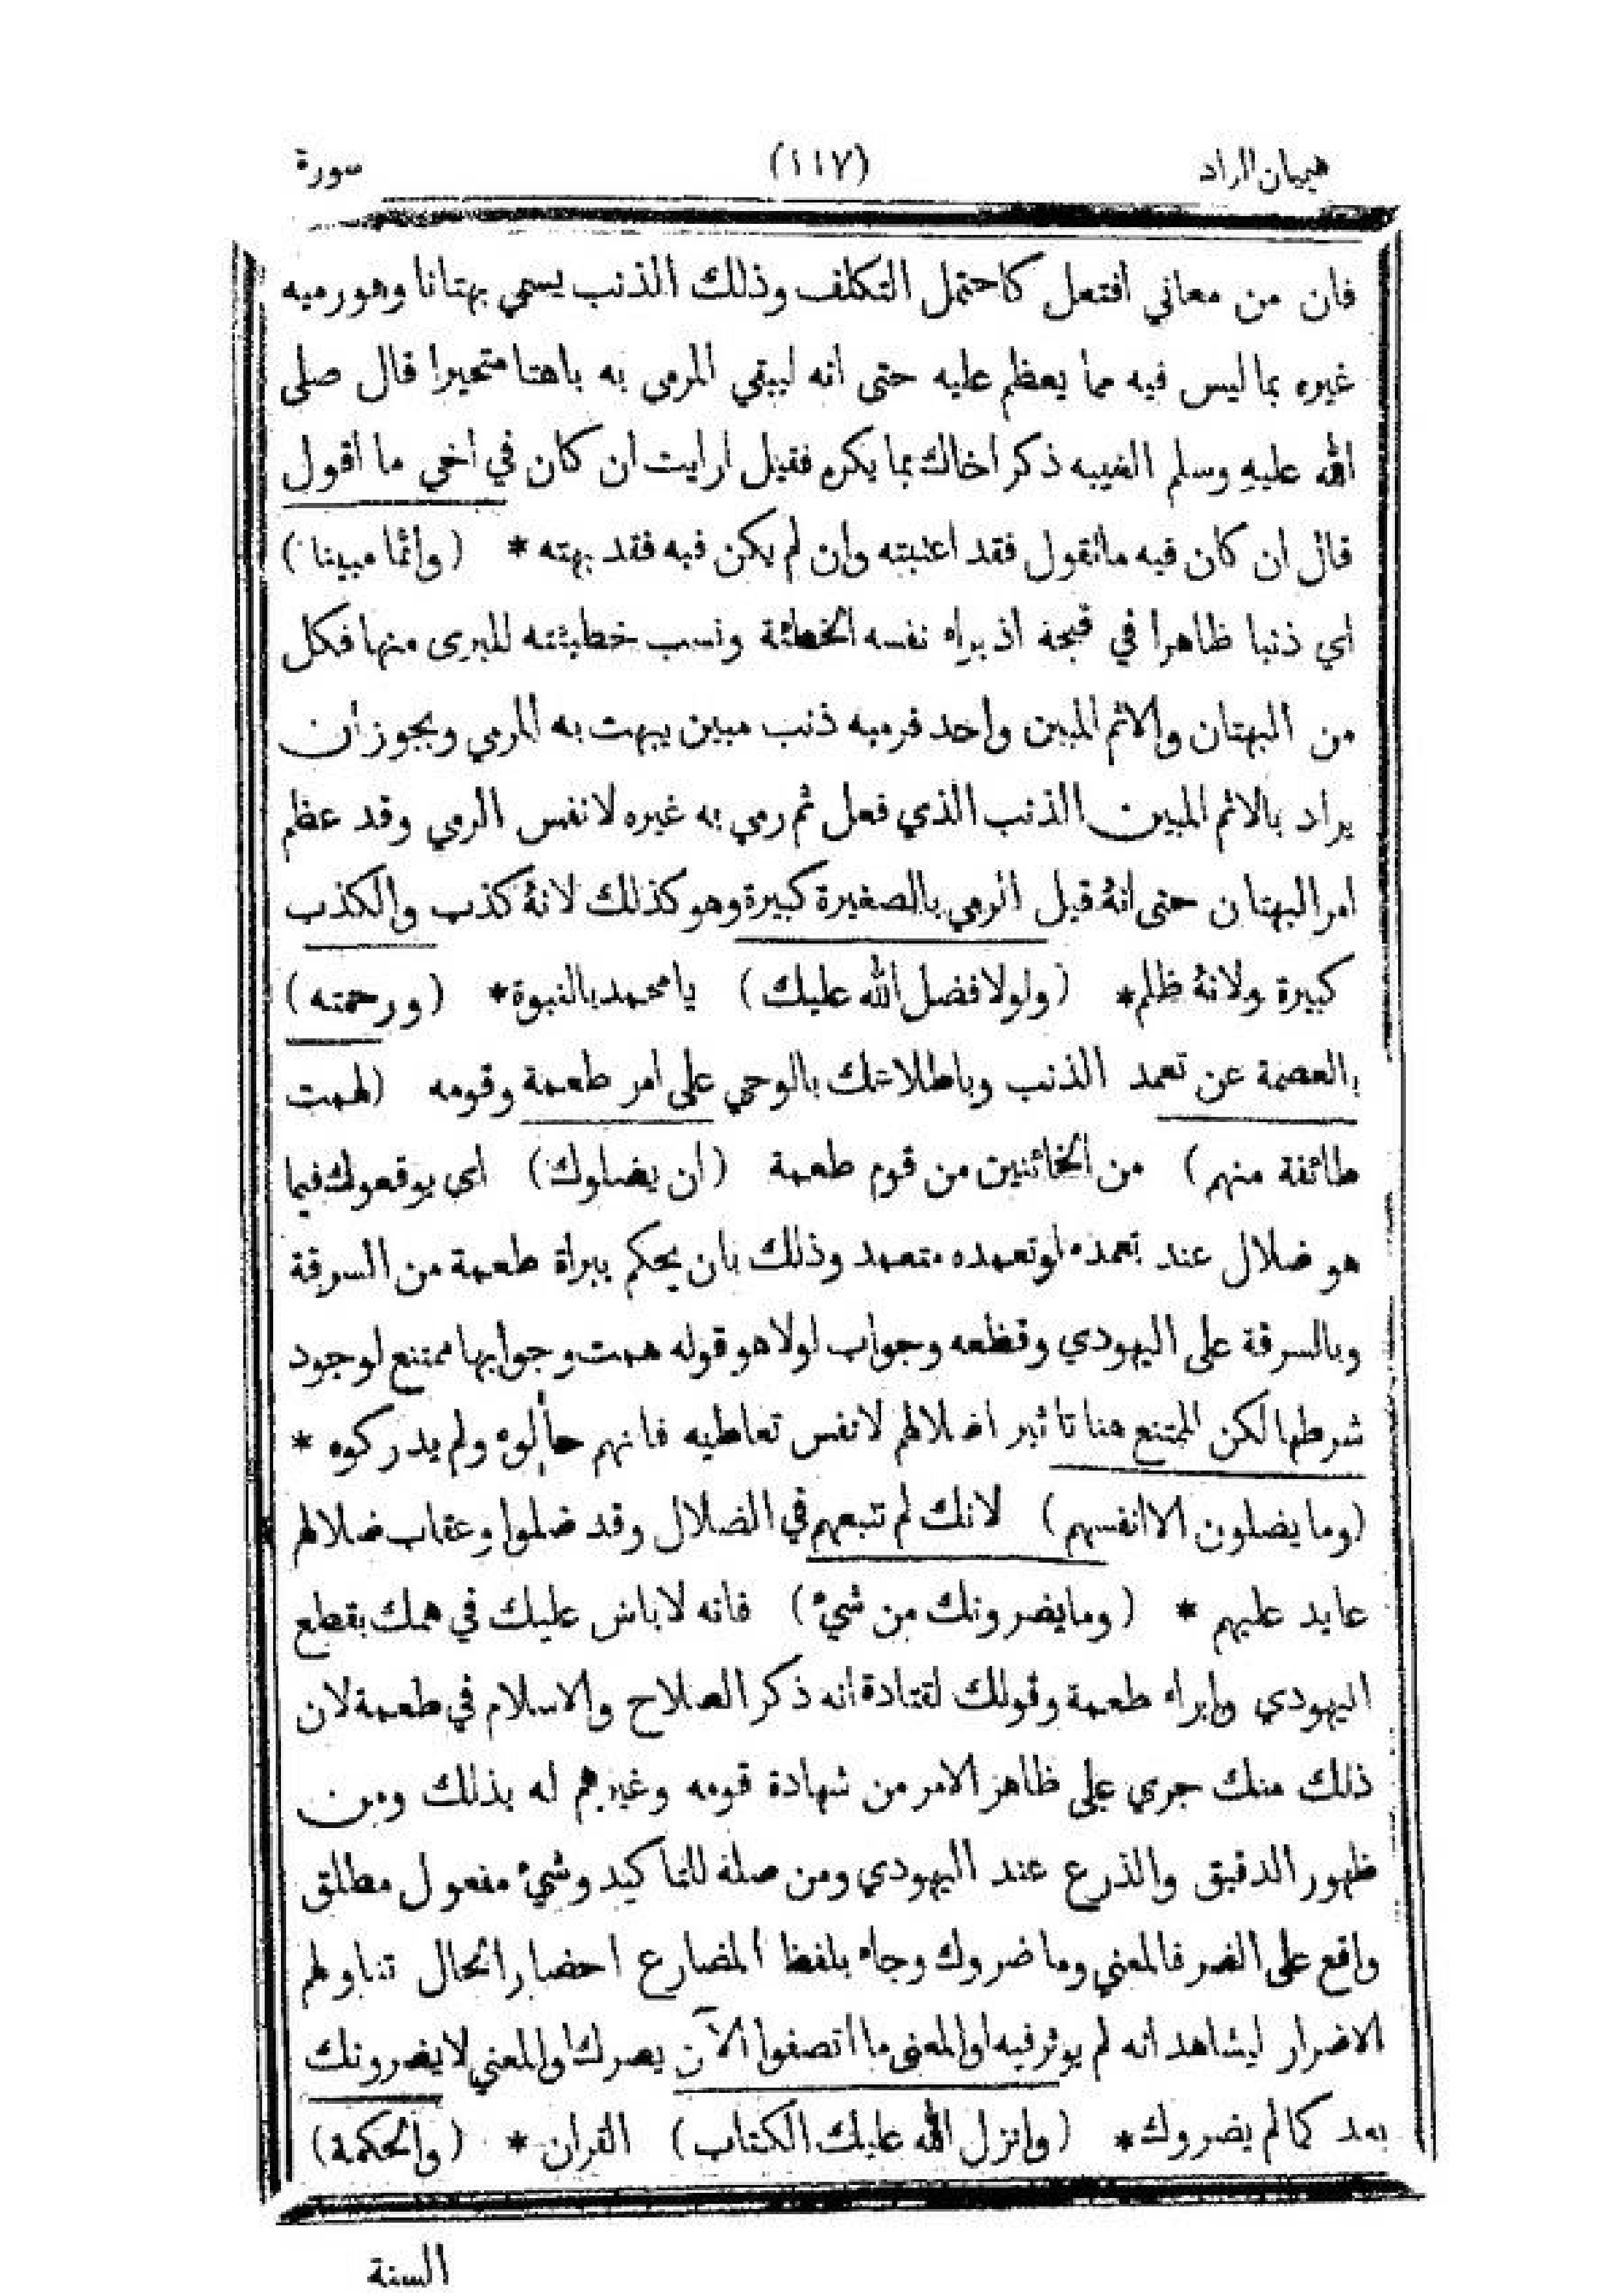 هيميان الزاد (١١٧) سورة
فان من معاني افتعل كاحتمل التكلف وذلك الذنب يسمي بهتانا وهو رميه
غيره بما ليس فيه مما يعظم عليه حتى انه ليبقي المرمى به باهتا متحيرا قال صلى
الله عليه وسلم الغيبه ذكر اخاك بما يكره فقيل ارايت ان كان في اخي ما اقول
قال ان كان فيه ما تقول فقد اغتبته وان لم يكن فيه فقد بهته * (واثما مبينا)
اي ذنبا ظاهرا في قبحة اذ براء نفسه الخطئة ونسب خطيئته للبرى منها فكل
من البهتان والاثم المبين واحد فرميه ذنب مبين يبهت به المرمي ويجوز ان
يراد بالاثم المبين الذنب الذي فعل ثم رمي به غيره لا نفس الرمي وقد عظم
امر البهتان حتى انهُ قيل الرمي بالصغيرة كبيرة وهو كذلك لانهُ كذب والكذب
كبيرة ولانهُ ظلم* (ولولا فضل الله عليك) يا محمد بالنبوة* (ورحمته)
بالعصمة عن تعمد الذنب وباطلاعك بالوحي على امر طعمة وقومه (لهمت
طائفة منهم) من الخائنين من قوم طعمة (ان يضلوك) اى يوقعوك فيما
هو ضلال عند تعمده لو تعمده متعمد وذلك بان يحكم ببراة طعمة من السرقة
وبالسرقة على اليهودي وقطعه وجواب لولا هو قوله همت وجوابها ممتنع لوجود
شرطها لكن الممتنع هنا تاثير اضلالهم لا نفس تعاطيه فانهم حاولوهُ ولم يدركوه *
(وما يضلون الا انفسهم) لانك لم تتبعهم في الضلال وقد ضلوا وعقاب ضلالهم
عايد عليهم * (وما يضرونك من شيء) فانه لا باس عليك في همك بقطع
اليهودي وابراء طعمة وقولك لقتادة انه ذكر الصلاح والاسلام في طعمة لان
ذلك منك جري على ظاهر الامر من شهادة قومه وغيرهم له بذلك ومن
ظهور الدقيق والذرع عند اليهودي ومن صلة للتاكيد وشيء مفعول مطلق
واقع على الضر فالمعني وما ضروك وجاء بلفظ المضارع احضار الحال تناولهم
الاضرار ليشاهد انه لم يوثر فيه او المعنى ما اتصفوا الآن بضرك او المعني لا يضرونك
بعد كما لم يضروك* (وانزل الله عليك الكتاب) القران * (والحكمة)
السنة